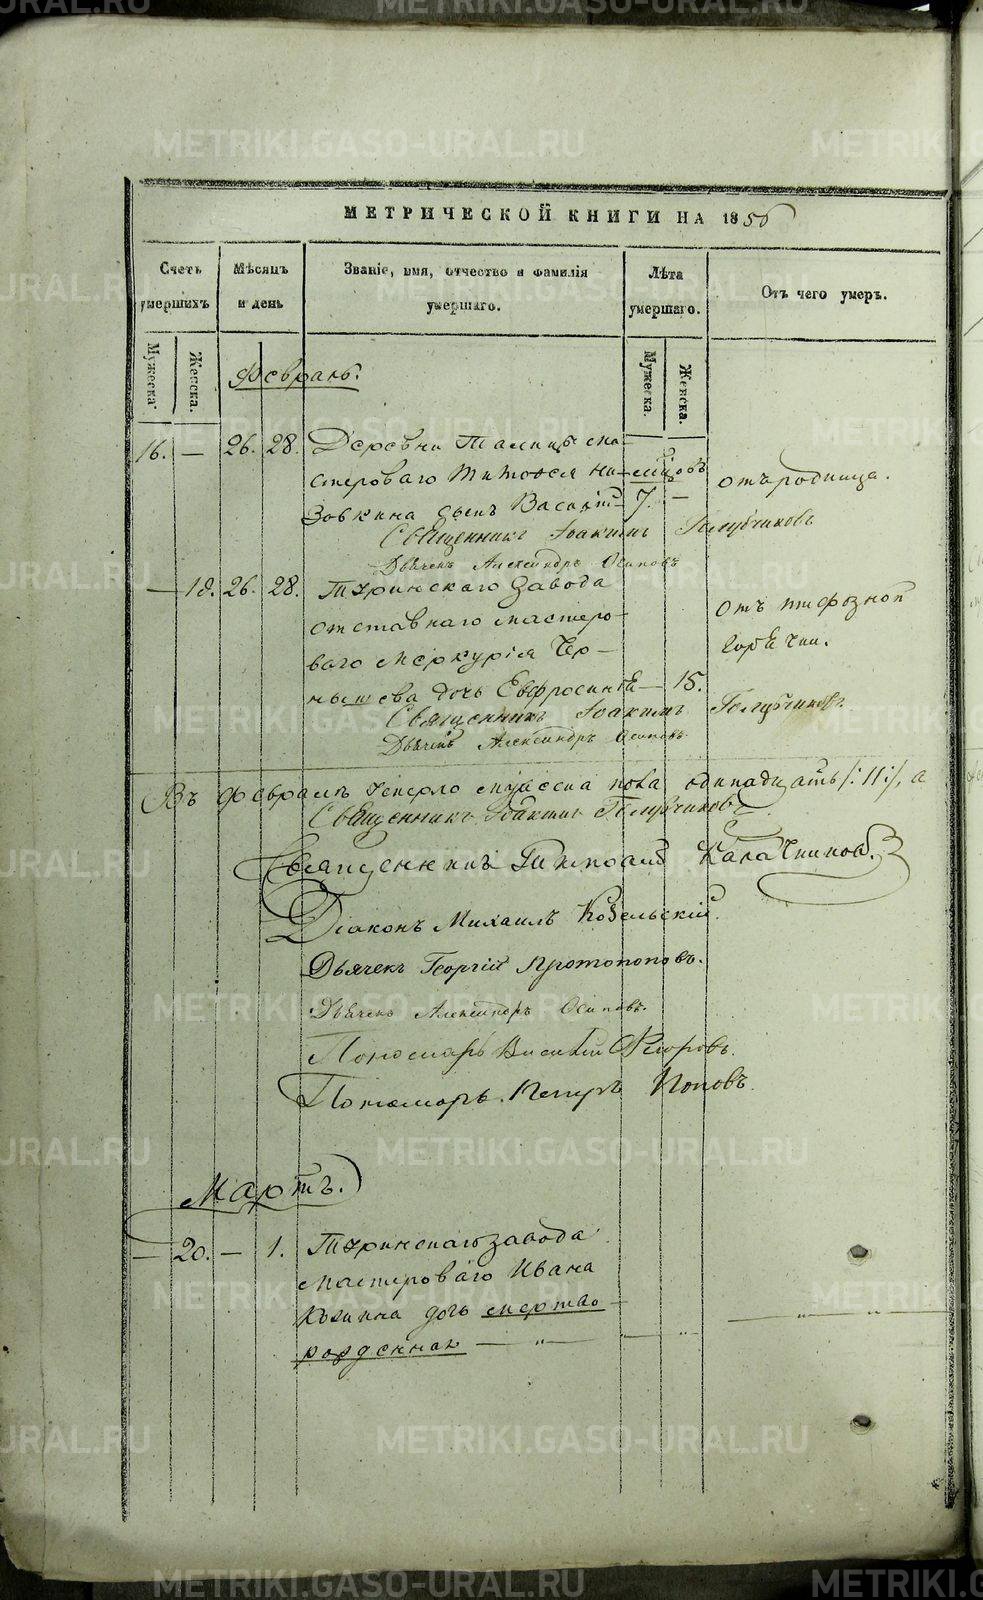 МЕТРИЧЕСКОЙ КНИГИ НА 1856
Счетъ умершихъ
Мѣсяцъ и день
Званіе, имя, отчество и фамилія умершаго.
Лѣта умершаго.
Отъ чего умеръ.
Мужеска.
Женска.
Мужеска.
Женска.
Февраль.
16. — 26. 28. Деревни Талицы ма-
стероваго Титова Ни- мѣсяцовъ
зовкина сынъ Василій — 7. — отъ родимца.
Священникъ Іоакимъ Голубчиковъ
Дьячекъ Александръ Осиповъ
— 19. 26. 28. Туринскаго завода
отставнаго мастеро-
ваго Меркурія Чер-
нышева дочь Евфросинія — 15. Отъ тифозной
горячки.
Священникъ Іоакимъ Голубчиковъ
Дьячекъ Александръ Осиповъ
Въ Февралѣ умерло мужеска пола одинадцать /:11:/, а
Священникъ Іоакимъ Голубчиковъ
Священникъ Калачниковъ.
Діаконъ Михаилъ Козельскій.
Дьячекъ Георгій Протопоповъ.
Дьячекъ Александръ Осиповъ.
Пономарь Василій Флоровъ.
Пономарь Петръ Поповъ.
Мартъ.
— 20. — 1. Туринскаго завода
мастероваго Ивана
дочь мертво
рожденная — " — — " — — " — " —
METRIKI.GASO-URAL.RU